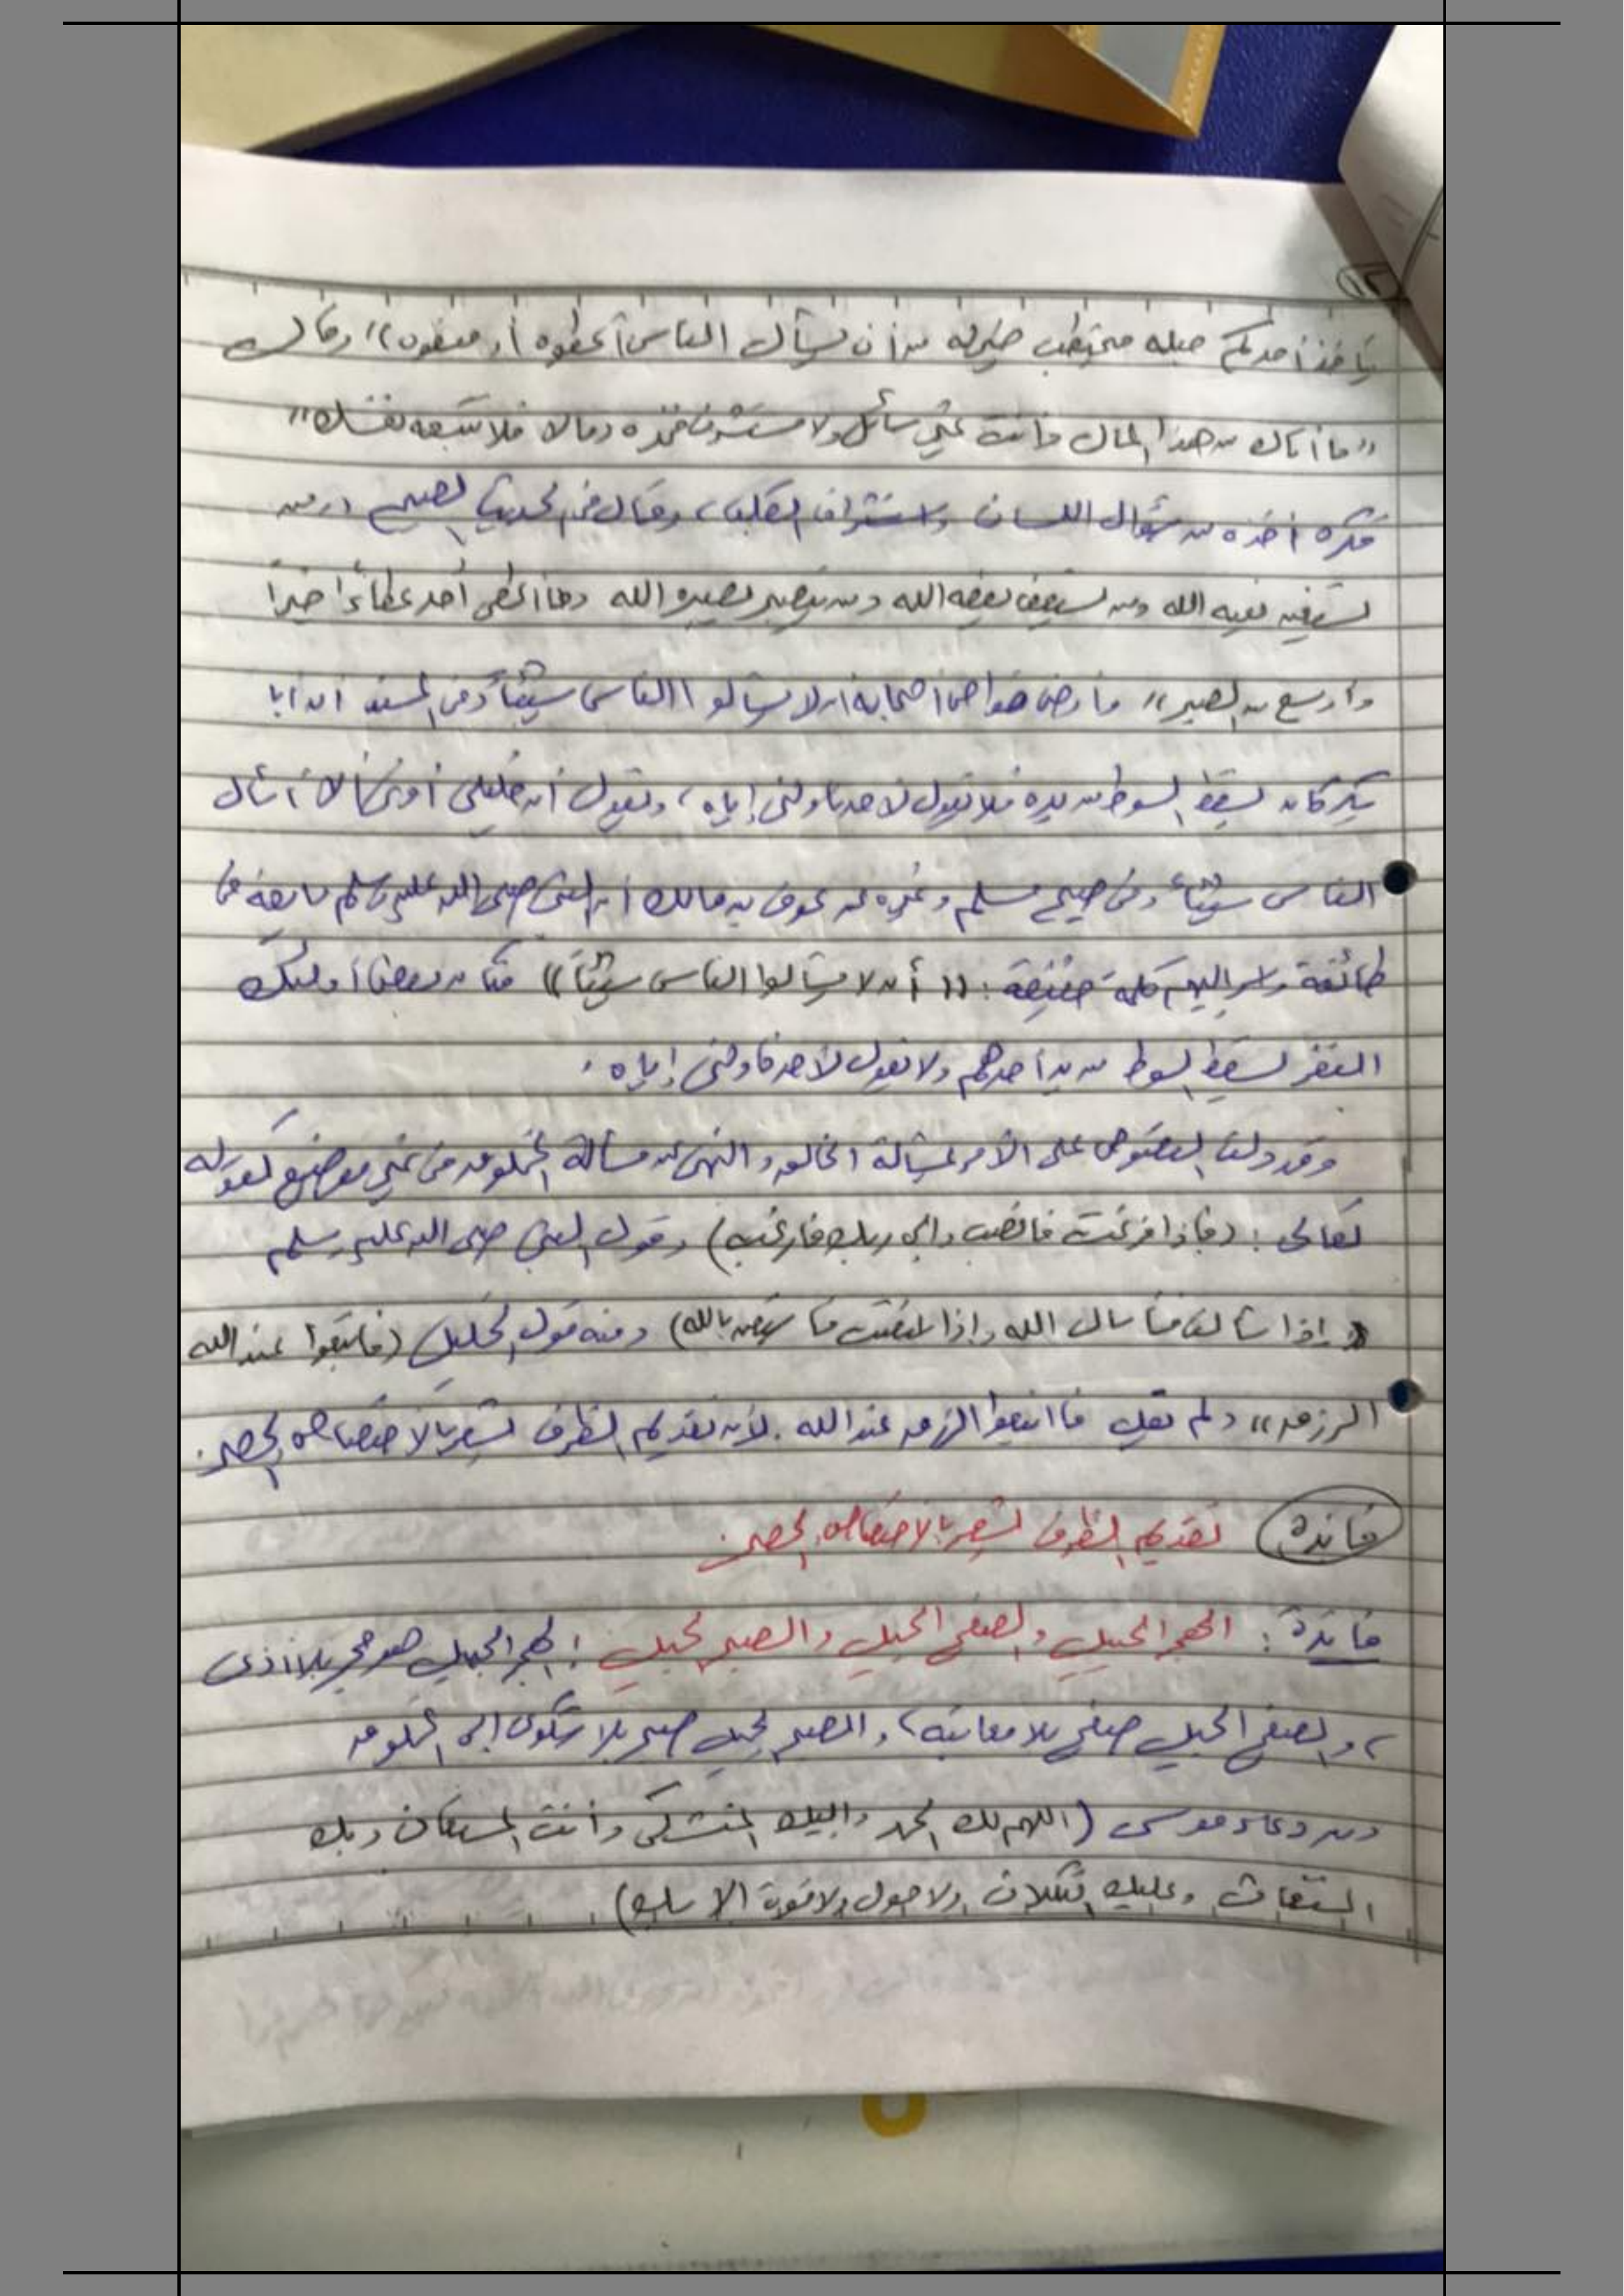 ١٢
يأخذ أحدكم حبله فيحتطب خير له من أن يسأل الناس أعطوه أو منعوه)) وقال
((ما أتاك من هذا المال وأنت غير سائل ولا مستشرف فخذه ومالا فلا تتبعه نفسك))
فكره أخذه من سؤال اللسان واستشراف القلب، وقال في الحديث الصحيح ((ومن
يستغن يغنه الله ومن يستعفف يعفه الله ومن يتصبر يصبره الله وما أعطى أحد عطاءً خيراً
وأوسع من الصبر)) وأوصى خواص أصحابه أن لا يسألوا الناس شيئاً وفي المسند أن أبا
بكر كان يسقط السوط من يده فلا يقول لأحد ناولني إياه، ويقول أن خليلي أمرني ألا أسأل
الناس شيئاً، وفي صحيح مسلم وغيره عن عوف بن مالك أن النبي صلى الله عليه وسلم بايعه في
طائفة وأسر إليهم كلمة خفيفة: ((أن لا تسألوا الناس شيئاً)) فكان بعض أولئك
النفر يسقط السوط من يد أحدهم ولا يقول لأحد ناولني إياه.
وقد دلت النصوص على الأمر بمسألة الخالق والنهي عن مسألة المخلوق في غير موضع كقوله
تعالى: (فإذا فرغت فانصب وإلى ربك فارغب) وقول النبي صلى الله عليه وسلم
((إذا سألت فاسأل الله وإذا استعنت فاستعن بالله) ومنه قول الخليل (فابتغوا عند الله
الرزق)) ولم يقل فابتغوا الرزق عند الله. لأن تقديم الظرف يشعر بالاختصاص والحصر.
فائدة تقديم الظرف يشعر بالاختصاص والحصر.
فائدة: الهجر الجميل والصفح الجميل والصبر الجميل: الهجر الجميل هو هجر بلا أذى
، والصفح الجميل صفح بلا معاتبة، والصبر الجميل صبر بلا شكوى إلى المخلوق
ومن دعاء موسى (اللهم لك الحمد وإليك المشتكى وأنت المستعان وبك
المستغاث وعليك التكلان ولا حول ولا قوة إلا بك)